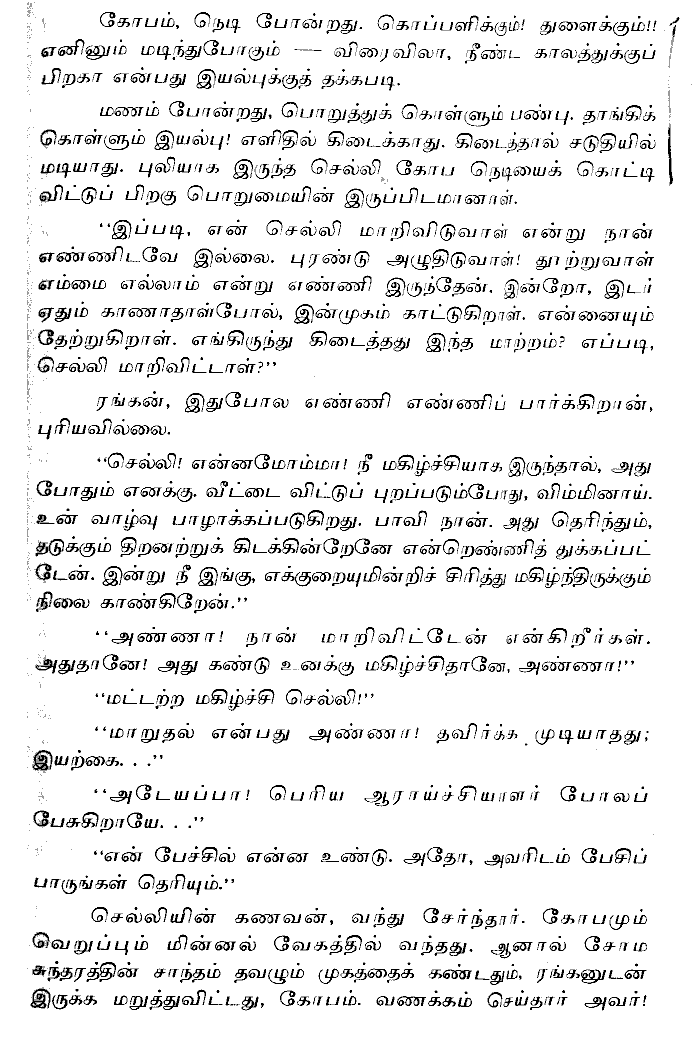 கோபம், நெடி போன்றது. கொப்பளிக்கும்! துளைக்கும்!!
எனினும் மடிந்துபோகும் — விரைவிலா, நீண்ட காலத்துக்குப்
பிறகா என்பது இயல்புக்குத் தக்கபடி.
மணம் போன்றது, பொறுத்துக் கொள்ளும் பண்பு. தாங்கிக்
கொள்ளும் இயல்பு! எளிதில் கிடைக்காது. கிடைத்தால் சடுதியில்
மடியாது. புலியாக இருந்த செல்லி கோப நெடியைக் கொட்டி
விட்டுப் பிறகு பொறுமையின் இருப்பிடமானாள்.
‘‘இப்படி, என் செல்லி மாறிவிடுவாள் என்று நான்
எண்ணிடவே இல்லை. புரண்டு அழுதிடுவாள்! தூற்றுவாள்
எம்மை எல்லாம் என்று எண்ணி இருந்தேன். இன்றோ, இடர்
ஏதும் காணாதாள்போல், இன்முகம் காட்டுகிறாள். என்னையும்
தேற்றுகிறாள். எங்கிருந்து கிடைத்தது இந்த மாற்றம்? எப்படி,
செல்லி மாறிவிட்டாள்?’’
ரங்கன், இதுபோல எண்ணி எண்ணிப் பார்க்கிறான்,
புரியவில்லை.
‘‘செல்லி! என்னமோம்மா! நீ மகிழ்ச்சியாக இருந்தால், அது
போதும் எனக்கு. வீட்டை விட்டுப் புறப்படும்போது, விம்மினாய்.
உன் வாழ்வு பாழாக்கப்படுகிறது. பாவி நான். அது தெரிந்தும்,
தடுக்கும் திறனற்றுக் கிடக்கின்றேனே என்றெண்ணித் துக்கப்பட்
டேன். இன்று நீ இங்கு, எக்குறையுமின்றிச் சிரித்து மகிழ்ந்திருக்கும்
நிலை காண்கிறேன்.’’
‘‘அண்ணா! நான் மாறிவிட்டேன் என்கிறீர்கள்.
அதுதானே! அது கண்டு உனக்கு மகிழ்ச்சிதானே, அண்ணா!’’
‘‘மட்டற்ற மகிழ்ச்சி செல்லி!’’
‘‘மாறுதல் என்பது அண்ணா! தவிர்க்க முடியாதது;
இயற்கை. . .’’
‘‘அடேயப்பா! பெரிய ஆராய்ச்சியாளர் போலப்
பேசுகிறாயே. . .’’
‘‘என் பேச்சில் என்ன உண்டு. அதோ, அவரிடம் பேசிப்
பாருங்கள் தெரியும்.’’
செல்லியின் கணவன், வந்து சேர்ந்தார். கோபமும்
வெறுப்பும் மின்னல் வேகத்தில் வந்தது. ஆனால் சோம
சுந்தரத்தின் சாந்தம் தவழும் முகத்தைக் கண்டதும், ரங்கனுடன்
இருக்க மறுத்துவிட்டது, கோபம். வணக்கம் செய்தார் அவர்!